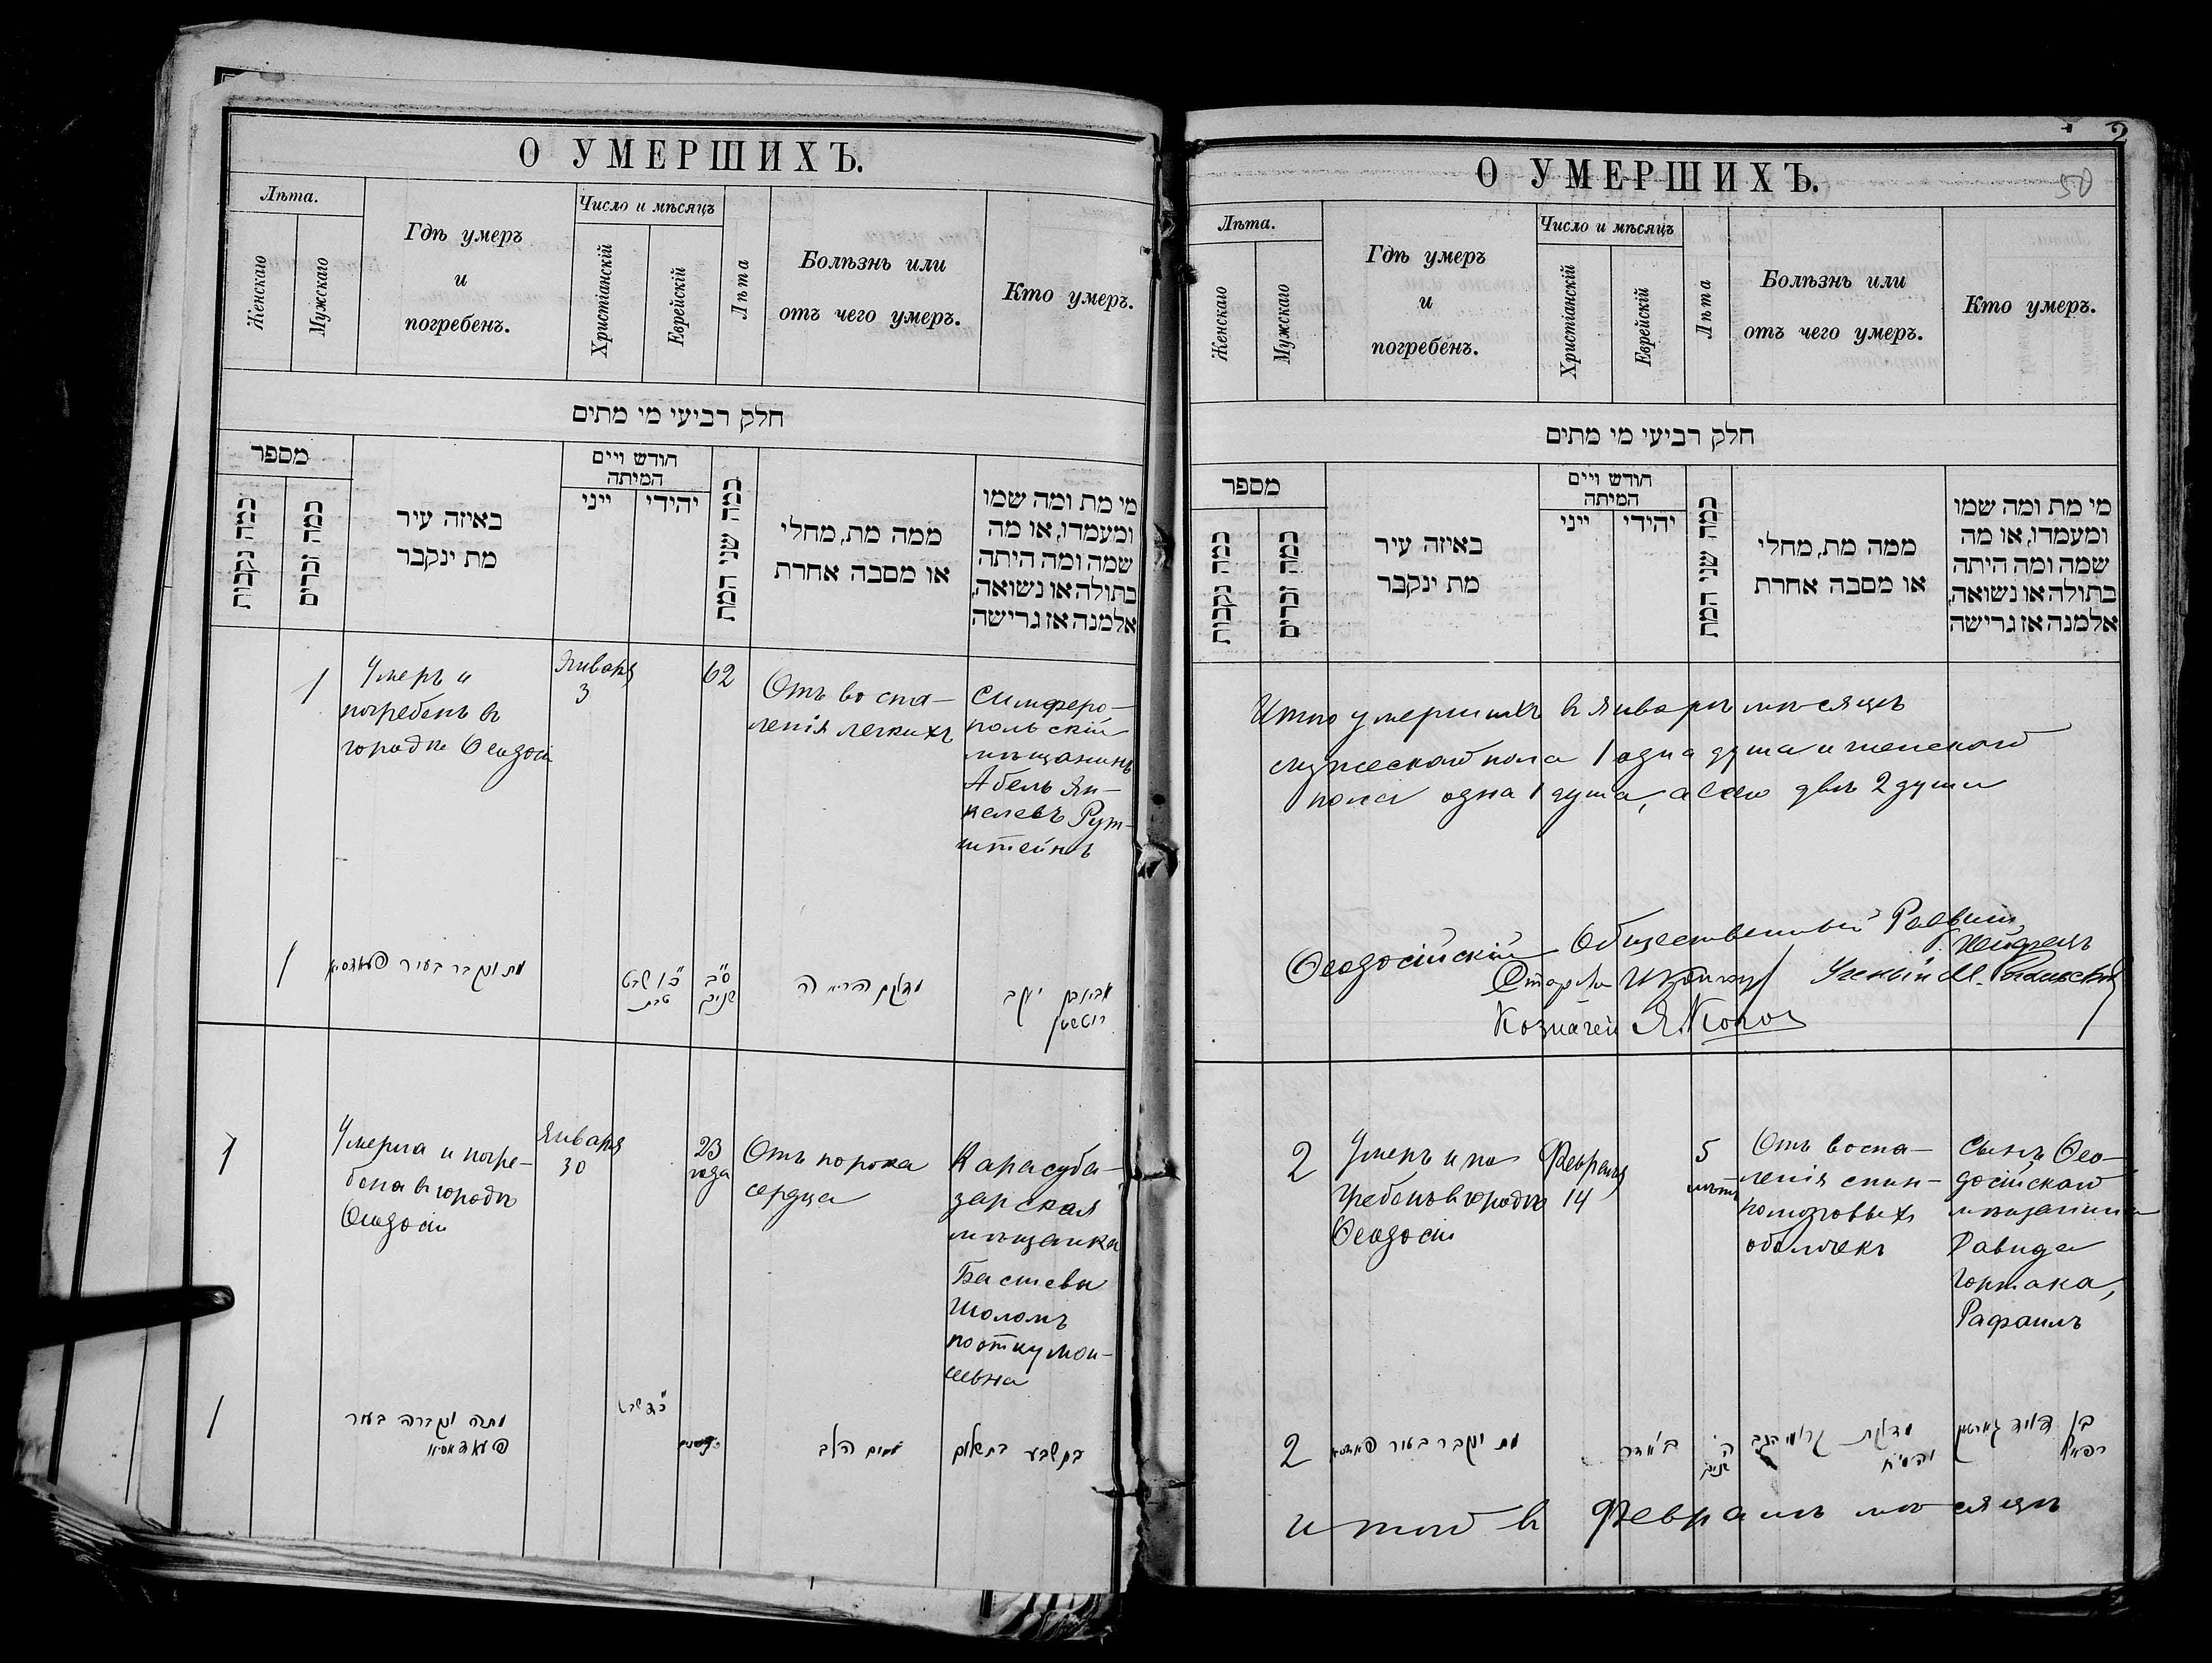 О УМЕРШИХЪ.
Лѣта.
Женскаго
Мужскаго
Гдѣ умеръ
и
погребенъ.
Число и мѣсяцъ
Христіанскій
Еврейскій
Лѣта
Болѣзнь или
отъ чего умеръ.
Кто умеръ.
חלק רביעי מי מתים
מספר
כמה נקבות
כמה זכרים
באיזה עיר
מת ינקבר
חודש ויים
המיתה
ייני
יהודי
כמה שני המת
ממה מת, מחלי
או מסבה אחרת
מי מת ומה שמו
ומעמדו, או מה
שמה ומה היתה
בתולה או נשואה,
אלמנה אז גרישה
1
Умеръ и
погребенъ въ
городѣ Ѳеодосіи
Января
3
62
Отъ воспа-
ленія легкихъ
Симферо-
польскій
мѣщанинъ
Абель Ян-
келевъ Рут-
штейнъ
1
מת ונקבר בעיר
טבת
ס"ב
שנים
יעקב
1
Умерла и погре-
бена въ городѣ
Ѳеодосіи
Января
30
23
года
Отъ порока
сердца
Карасуба-
зарская
мѣщанка
Башева
Шоломъ
1
מתה ונקברה בעיר
שבט
הלב
בת שבע בת שלום
2
50
О УМЕРШИХЪ.
Лѣта.
Женскаго
Мужскаго
Гдѣ умеръ
и
погребенъ.
Число и мѣсяцъ
Христіанскій
Еврейскій
Лѣта
Болѣзнь или
отъ чего умеръ.
Кто умеръ.
חלק רביעי מי מתים
מספר
כמה נקבות
כמה זכרים
באיזה עיר
מת ינקבר
חודש ויים
המיתה
ייני
יהודי
כמה שני המת
ממה מת, מחלי
או מסבה אחרת
מי מת ומה שמו
ומעמדו, או מה
שמה ומה היתה
בתולה או נשואה,
אלמנה אז גרישה
Итого умершихъ въ январѣ мѣсяцѣ
мужескаго пола 1 одна душа и женскаго
пола одна 1 душа, а всего двѣ 2 души
Ѳеодосійскій Общественный Раввинъ
Староста
Ученый М.
Казначей Я.
2
Умеръ и по
гребенъ въ городѣ
Ѳеодосіи
Февраля
14
5
лѣтъ
Отъ воспа-
ленія спин-
номозговыхъ
оболочекъ
Сынъ Ѳео-
досійскаго
мѣщанина
Давида
Гортака,
Рафаилъ
2
מת ונקבר בעיר
אדר
ה'
שנים
בן דוד
רפאל
Итого въ Февралѣ мѣсяцѣ